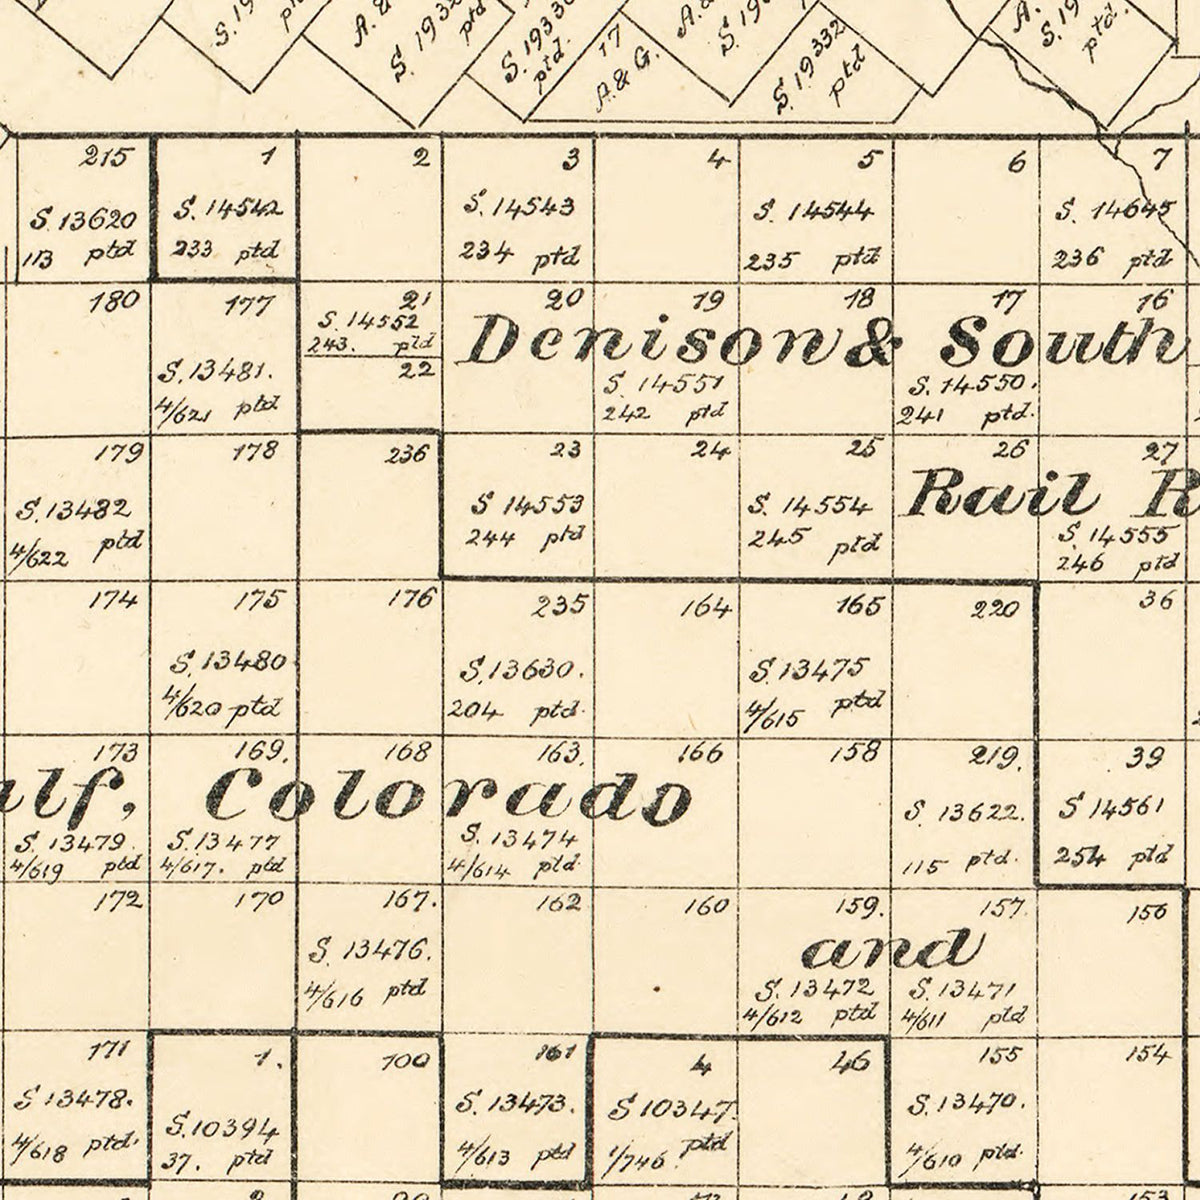 S. 19332
ptd
17
A. & G.
215
1
2
3
4
5
6
7
S. 13620
S. 14542
S. 14543
S. 14544
S. 14645
113 ptd
233 ptd
234 ptd
235 ptd
236 ptd
180
177
21
20
19
18
17
16
S. 14552
243. ptd
22
Denison & South
S. 13481.
4/621 ptd
S. 14551
242 ptd
S. 14550.
241 ptd.
179
178
236
23
24
25
26
27
Rail R
S. 13482
4/622 ptd
S 14553
244 ptd
S. 14554
245 ptd
S. 14555
246 ptd
174
175
176
235
164
165
220
36
S. 13480
4/620 ptd
S. 13630.
204 ptd.
S. 13475
4/615 ptd
173
169.
168
163.
166
158
219.
39
lf, Colorado
S. 13479.
4/619 ptd
S. 13477
4/617. ptd
S. 13474
4/614 ptd
S. 13622.
115 ptd.
S 14561
254 ptd
172
170
167.
162
160
159.
157.
156
and
S. 13476.
4/616 ptd
S. 13472
4/612 ptd
S. 13471
4/611 ptd
171
1.
100
161
4
46
155
154
S 13478.
4/618 ptd.
S. 10394
37. ptd
S. 13473.
4/613 ptd
S 10347.
1/746 ptd
S. 13470.
4/610 ptd.
153